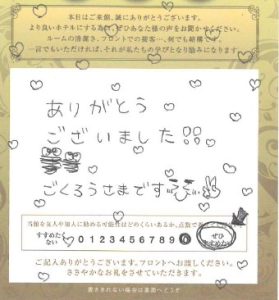 本日はご来館、誠にありがとうございます。
より良いホテルにする為に、ぜひあなた様の声をお聞かせください。
ルームの清潔さ、フロントでの接客…、何でも結構です。
一言でもいただければ、それが私たちの学びとなり励みになります
ありがとう
ございました!!
ごくろうさまです
当館を友人や知人に勧める可能性はどのくらいあるか、点数で
すすめたくない 0 1 2 3 4 5 6 7 8 9 ぜひすすめたい
ご記入ありがとうございます。フロントへお渡しください。
ささやかなお礼をさせていただきます。